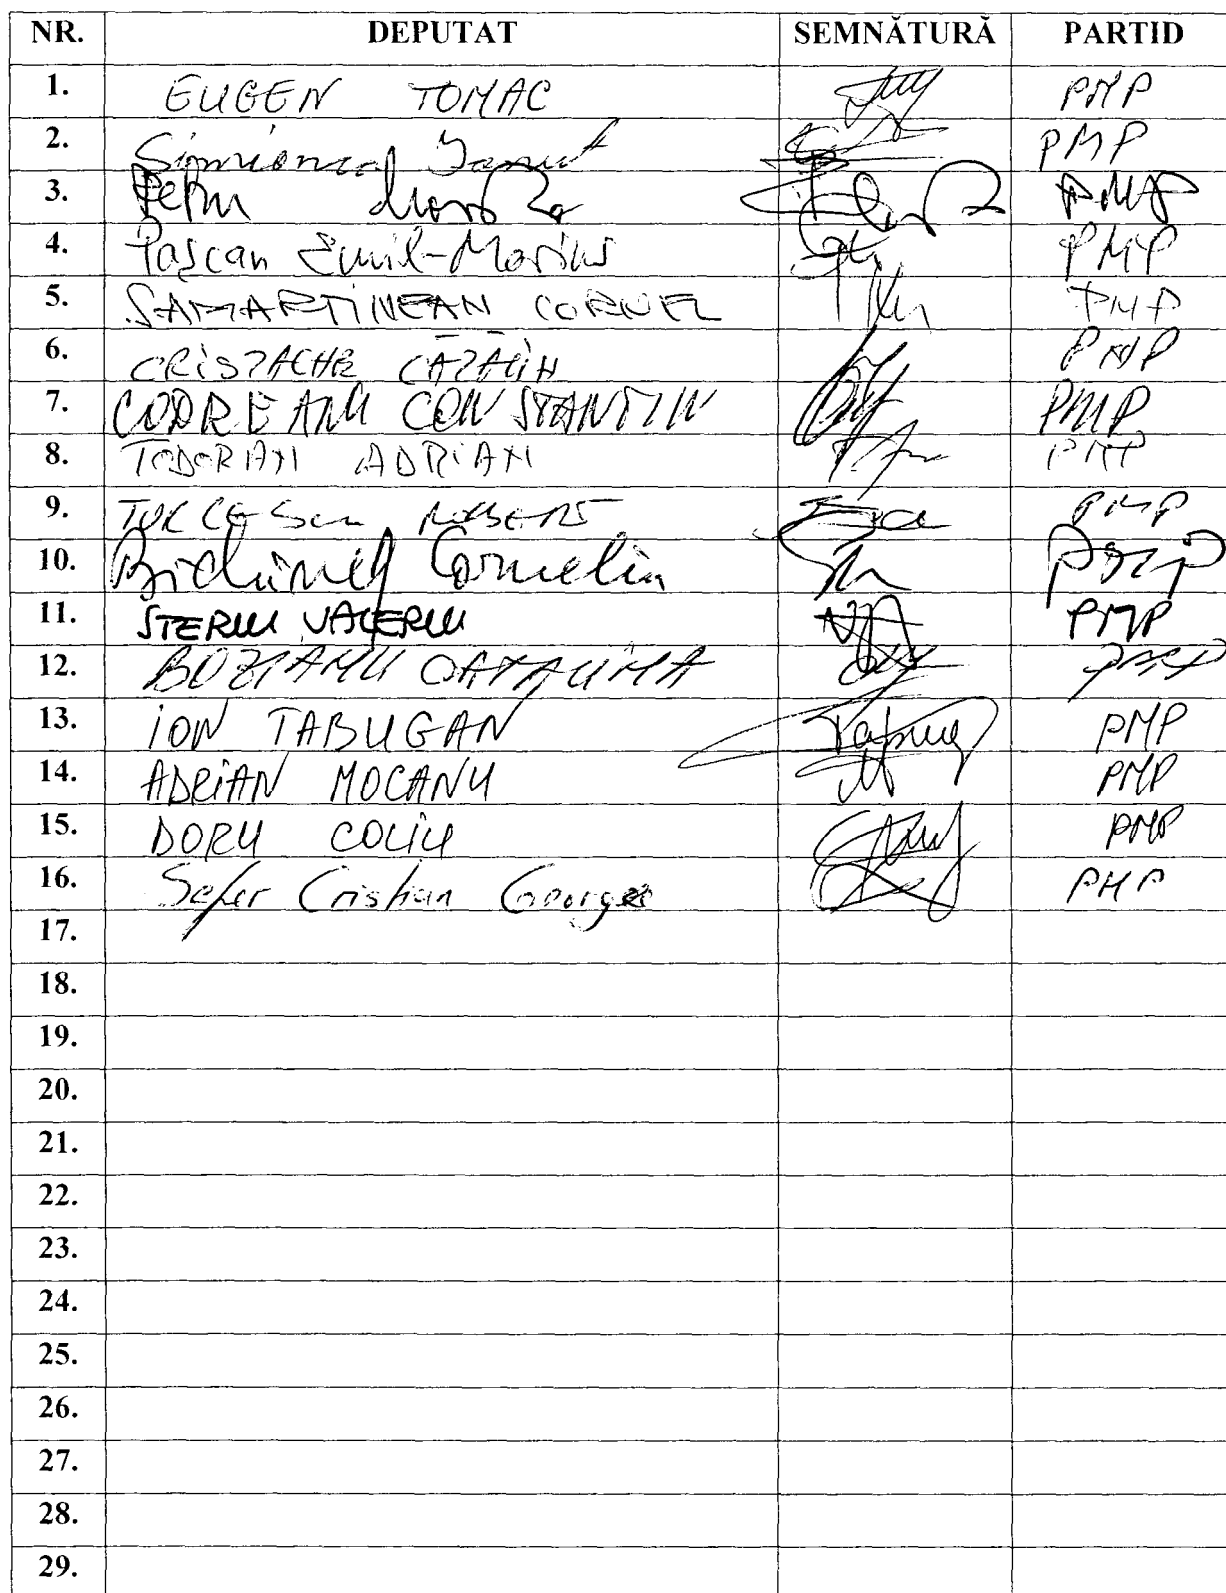 NR. DEPUTAT SEMNĂTURĂ PARTID
1. EUGEN TOMAC PMP
2. Simionca Ionut PMP
3. Petru Movilă PMP
4. Pașcan Emil-Marius PMP
5. SĂMĂRTINEAN CORNEL PMP
6. CRISTACHE CĂTĂLIN PMP
7. CODREANU CONSTANTIN PMP
8. TODORAN ADRIAN PMP
9. TURCESCU ROBERT PMP
10. Bichineț Corneliu PMP
11. STERIU VALERIU PMP
12. BOZIANU CATALINA PMP
13. ION TABUGAN PMP
14. ADRIAN MOCANU PMP
15. DORU COLIU PMP
16. Sefer Cristian George PMP
17.
18.
19.
20.
21.
22.
23.
24.
25.
26.
27.
28.
29.